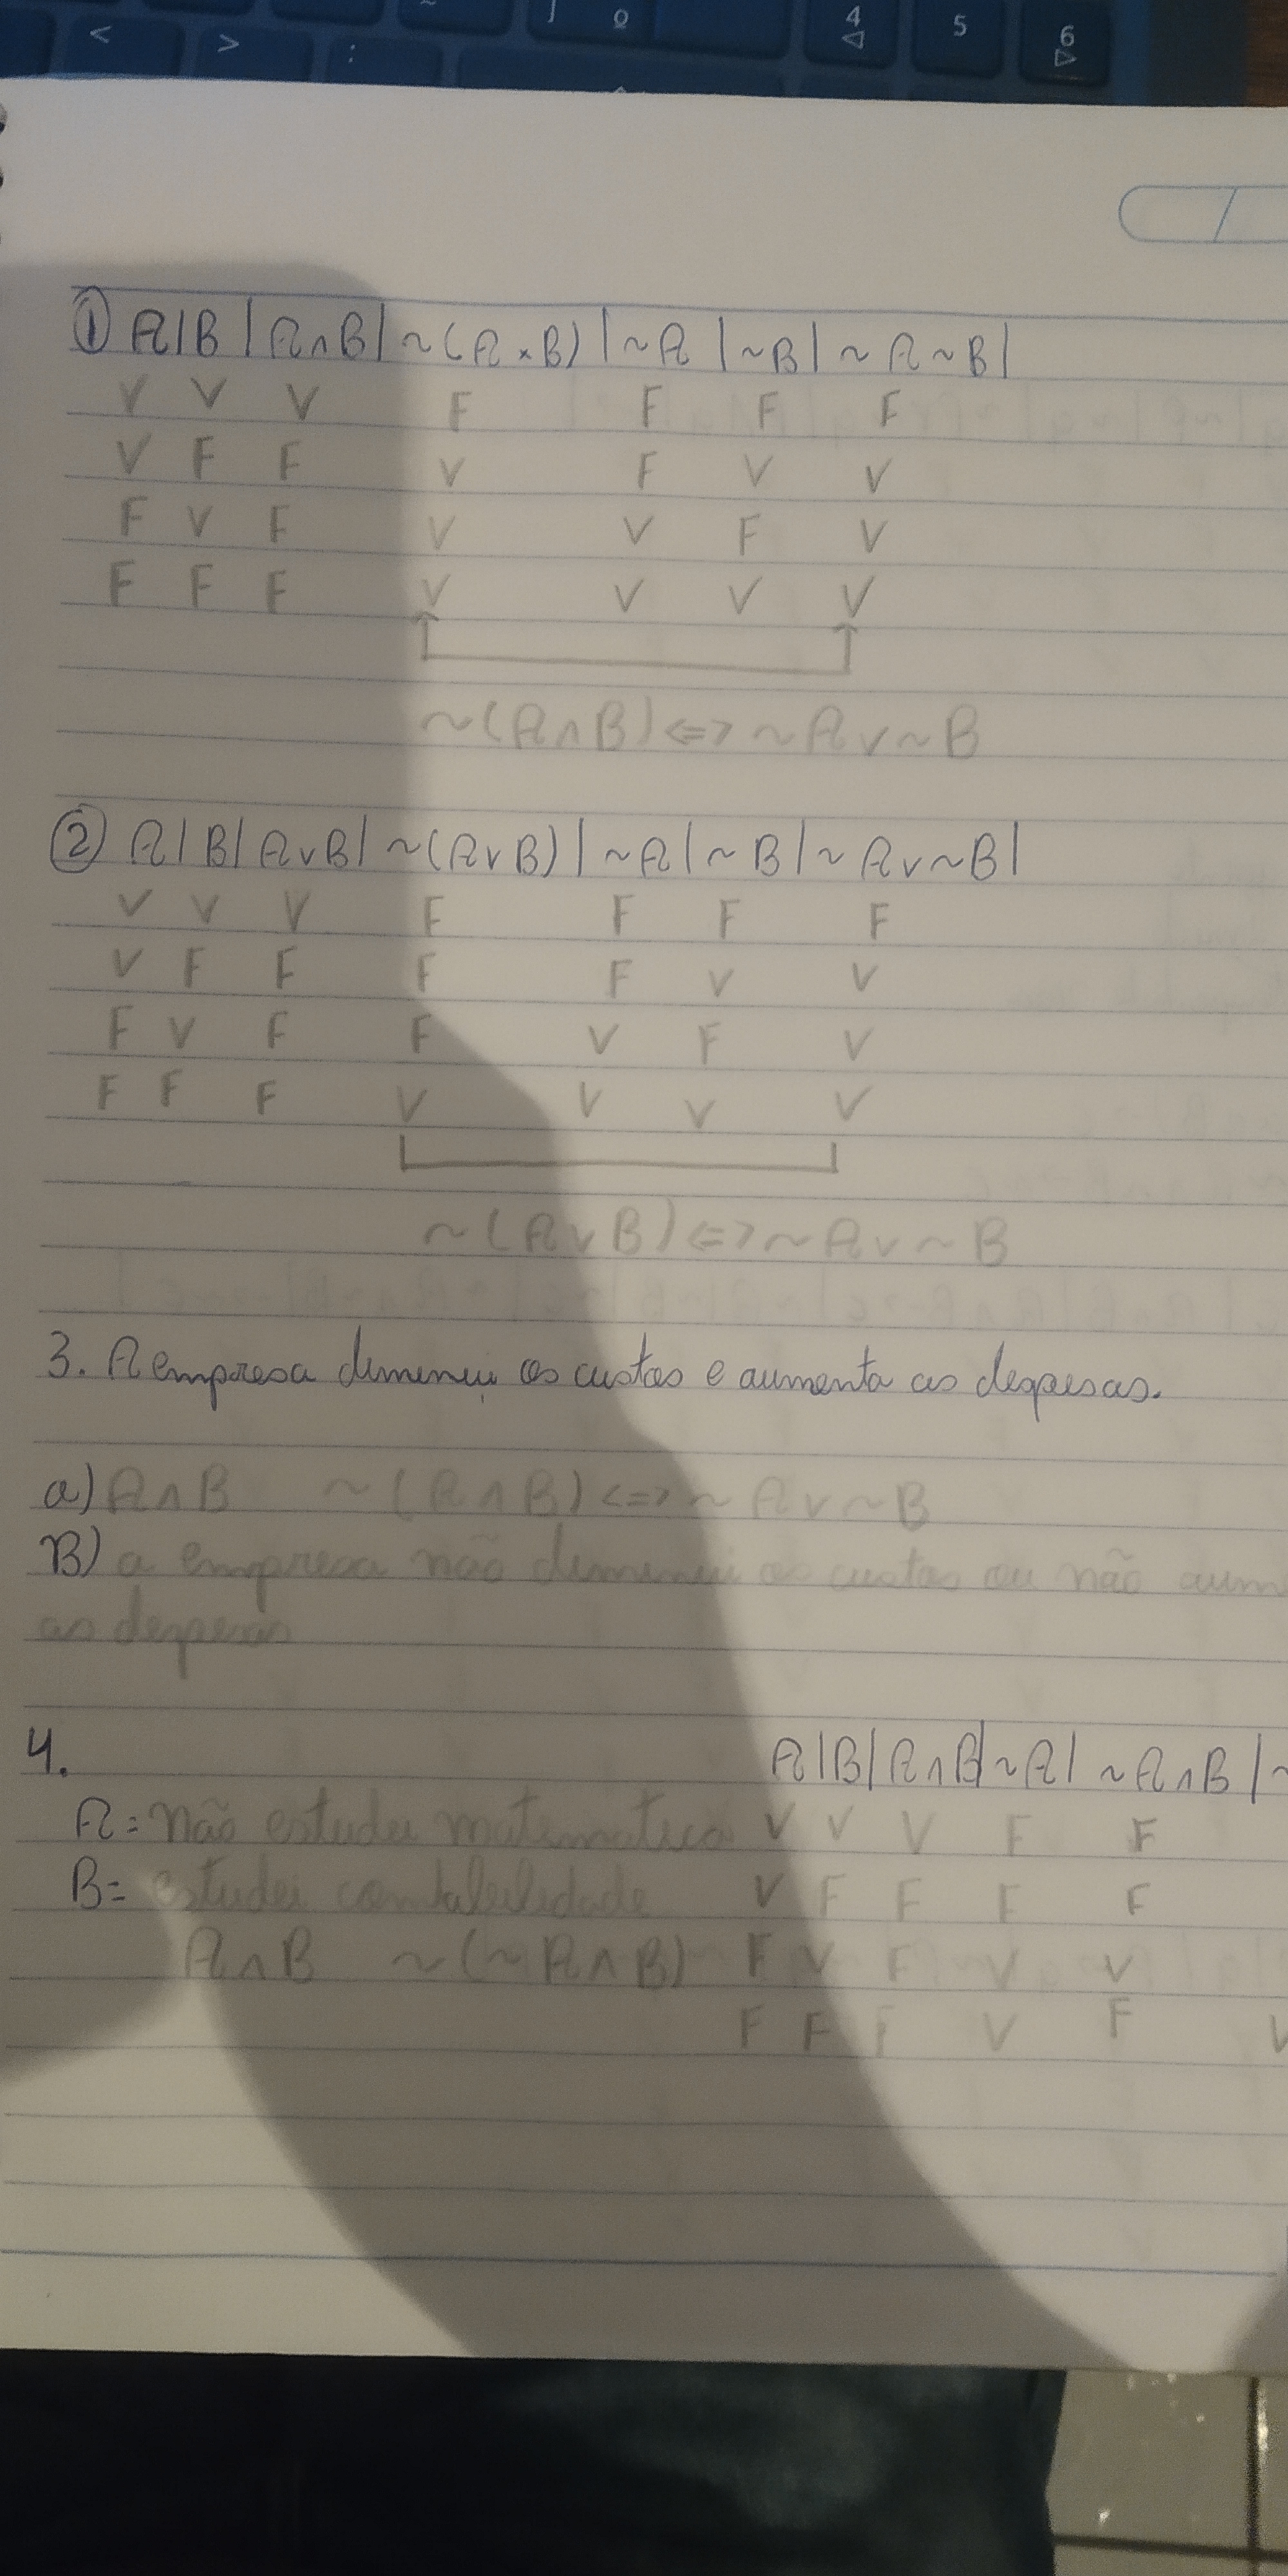 < > : º 4 5 6
① A|B|A∧B|~(A×B)|~A|~B|~A ~B|
V V V F F F F
V F F V F V V
F V F V V F V
F F F V V V V
~(A∧B)<=>~A∨~B
② A|B|A∨B|~(A∨B)|~A|~B|~A∨~B|
V V V F F F F
V F F F F V V
F V F F V F V
F F F V V V V
~(A∨B)<=>~A∨~B
3. A empresa diminui os custos e aumenta as despesas.
a) A∧B ~(A∧B)<=>~A∨~B
B) a empresa não diminui os custos ou não aum
as despesas
4. A|B|A∧B|~A|~A∧B|~
A= Não estudei matematica V V V F F
B= estudei contabilidade V F F F F
A∧B ~(~A∧B) F V F V V
F F F V F V